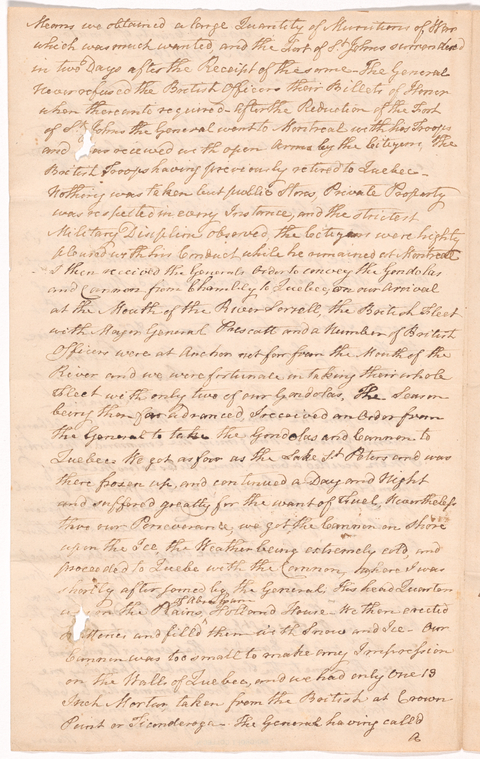 Means we obtained a large Quantity of Munitions of War
which was much wanted and the Fort of St. Johns surrendered
in two Days after the Receipt of the same - The General
never refused the British Officers their Billets of Honor
when thereunto required - After the Reduction of the Fort
of St. Johns the General went to Montreal with his Troops
and was received with open Arms by the Citizens, The
British Troops having previously retired to Quebec -
Nothing was taken but public Stores, Private Property
was respected in every Instance, and the strictest
Military Displine observed, the Citizens were highly
pleased with his Conduct while he remained at Montreal
I then received the Generals Order to convey the Gondolas
and Cannon from Chambley to Quebec, on our Arrival
at the Mouth of the River Sorrell, the British Fleet
with Major General Prescott and a Number of British
Officers were at Anchor not far from the Mouth of the
River and we were fortunate in taking their whole
Fleet with only two of our Gondolas, The Season
being then far advanced I received an Order from
the General to take the Gondolas and Cannon to
Quebec We got as far as the Lake St. Peters and was
there frozen up, and continued a Day and Night
and suffered greatly for the want of Fuel, Nevertheless
thro our Perseverance, we got the Cannon on Shore
upon the Ice the Weather being extremely cold, and
proceeded to Quebec with the Cannon, where I was
shortly after joined by the General, His head Quarters
was in the Plains of Abraham, Holland House - We then erected
Batteries and filled them with Snow and Ice - Our
Cannon was too small to make any Impression
on the Walls of Quebec, and we had only One 13
Inch Mortar taken from the British at Crown
Point or Ticonderoga - The General having called
a